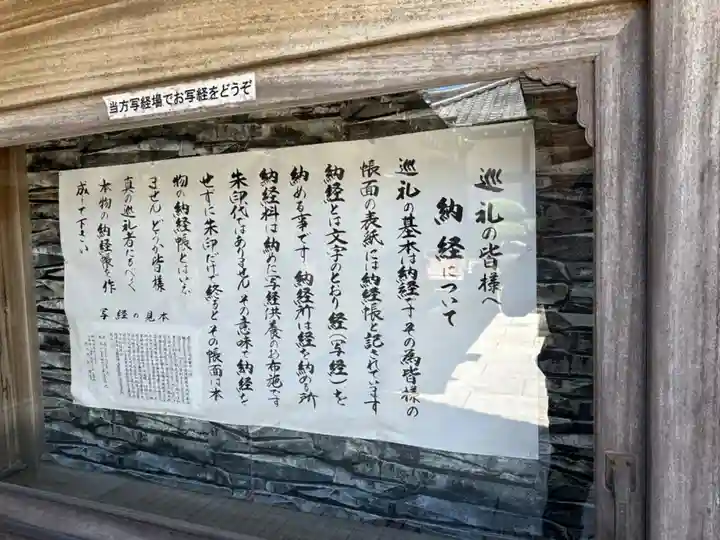 当方写経場でお写経をどうぞ
巡礼の皆様へ
納経について
巡礼の基本は納経です。その為皆様の
帳面の表紙には納経帳と記されています
納経とは文字のとおり経(写経)を
納める事です。納経所は経を納める所
納経料は納めた写経供養のお布施です
朱印代ではありません その意味で納経を
せずに朱印だけで終ると その帳面は本
物の納経帳とはいえ
ません どうか皆様
真の巡礼者たるべく
本物の納経帳を作
成して下さい
写経の見本